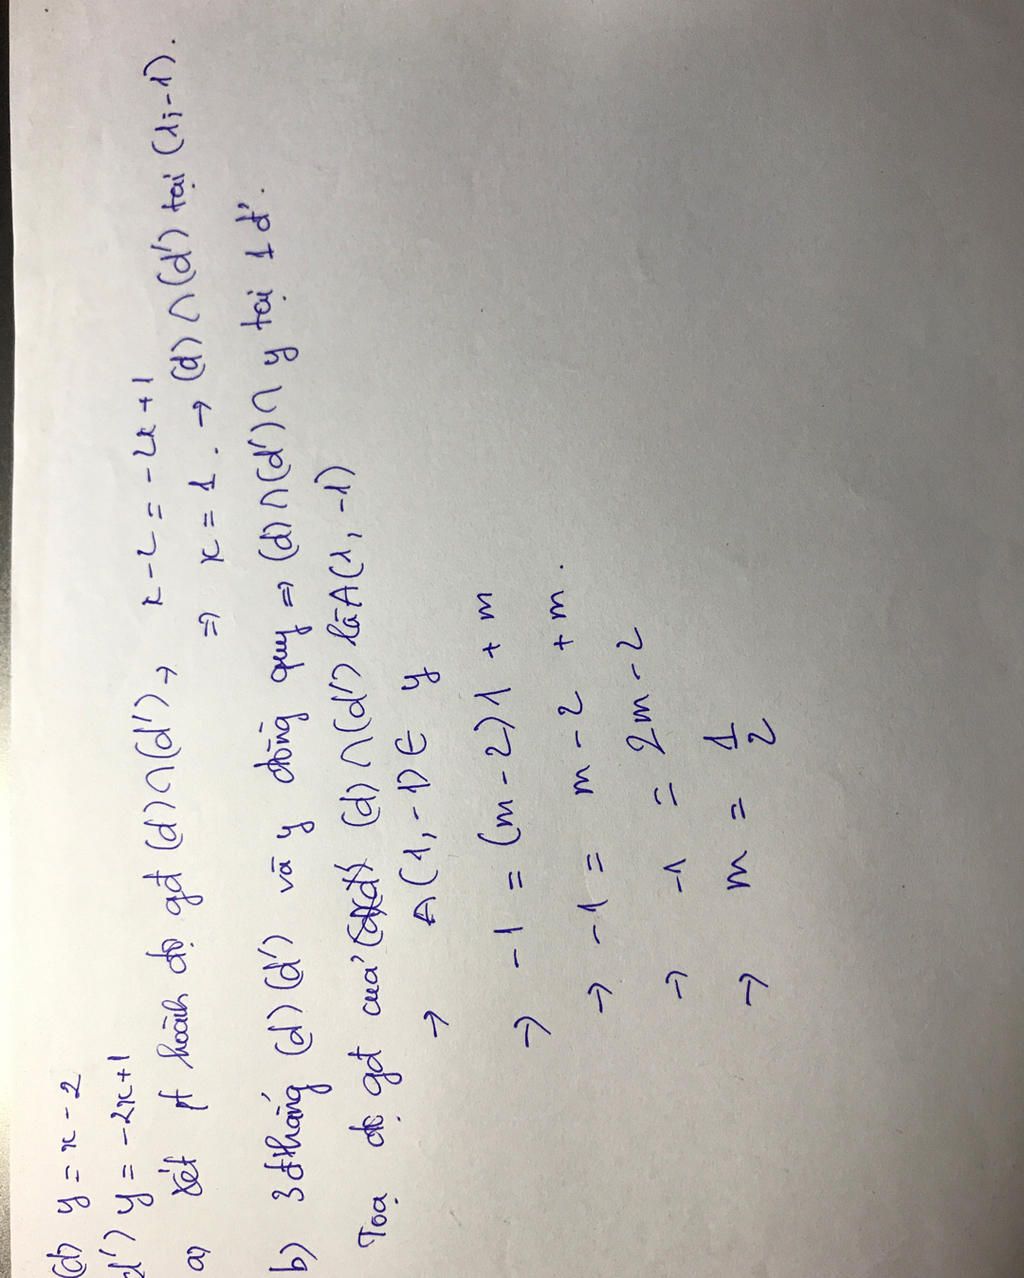 (d) y = x - 2
(d') y = -2x+1
a) Xét pt hoành độ gđ (d)∩(d') → x-2 = -2x+1
⇒ x = 1. → (d)∩(d') tại (1;-1).
b) 3 đthẳng (d) (d') và y đồng quy ⇒ (d)∩(d')∩ y tại 1 đ'.
Toạ độ gđ của (d)∩(d') là A(1, -1)
→ A(1,-1)∈ y
→ -1 = (m-2)1 + m
→ -1 = m-2 + m.
→ -1 = 2m-2
→ m = 1/2